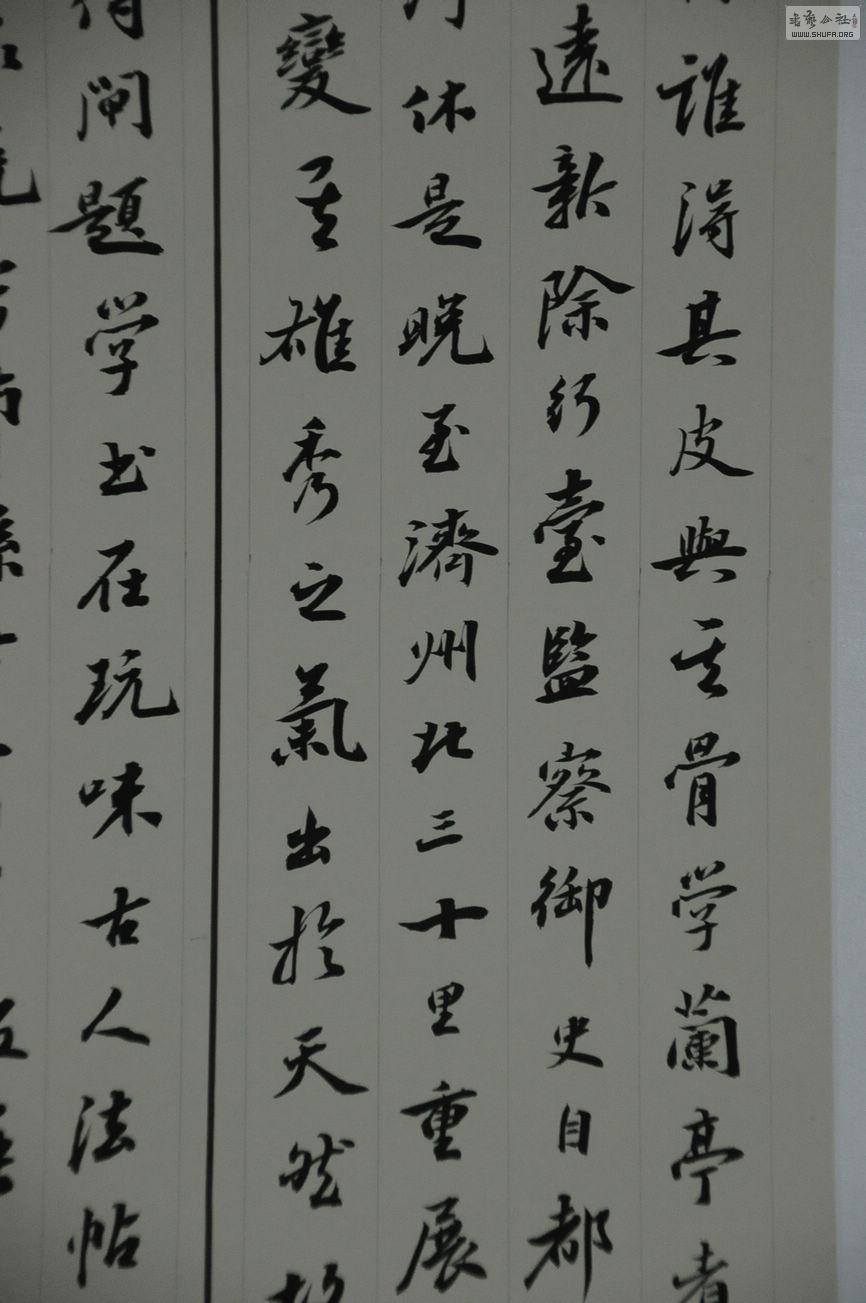 誰得其皮與其骨学蘭亭者
遠新除行臺監察御史自都
休是晚至濟州北三十里重展
變其雄秀之氣出於天然故
閘題学书在玩味古人法帖
书艺公社
WWW.SHUFA.ORG